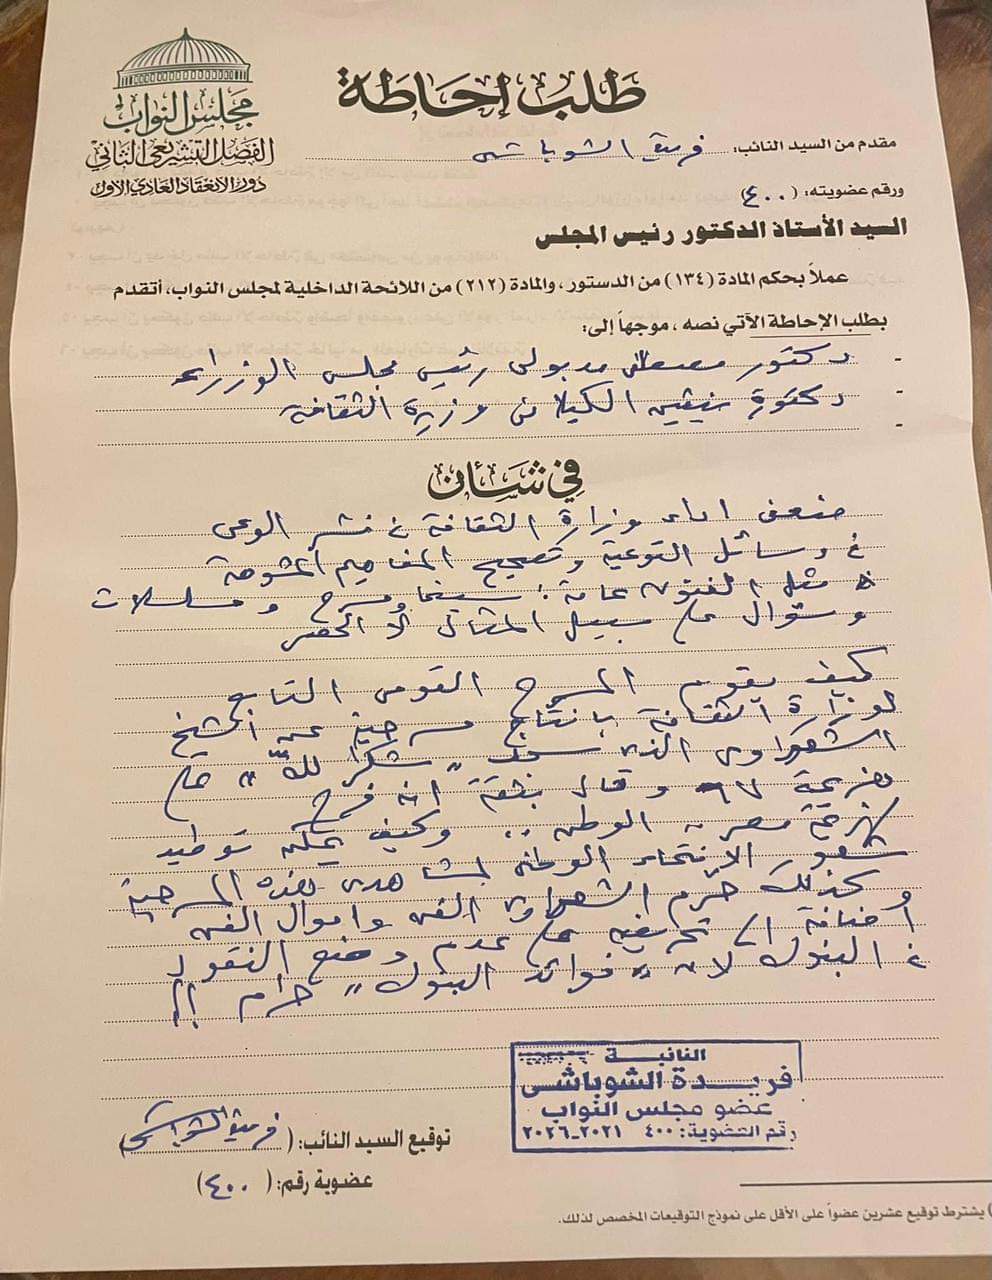 مجلس النواب
الفصل التشريعى الثانى
دور الانعقاد العادى الأول
طلب إحاطة
مقدم من السيد النائب: فريدة الشوباشى
ورقم عضويته: (٤٠٠)
السيد الأستاذ الدكتور رئيس المجلس
عملاً بحكم المادة (١٣٤) من الدستور، والمادة (٢١٢) من اللائحة الداخلية لمجلس النواب، أتقدم
بطلب الإحاطة الآتي نصه، موجهاً إلى:
- دكتور مصطفى مدبولى رئيس مجلس الوزراء
- دكتورة نيفين الكيلانى وزيرة الثقافة
-
في شأن
ضعف اداء وزارة الثقافة فى نشر الوعى
فى وسائل التوعية وتصحيح المفاهيم المشوهة
مثل الفنون عامة: سينما ومسرح ومسلسلات
وسؤال على سبيل المثال لا الحصر
كيف يقوم المسرح القومى التابع
لوزارة الثقافة بانتاج مسرحية عن الشيخ
الشعراوى الذى سجد "شكرا لله" على
هزيمة ٦٧ وقال بثقة انه فرح
لهزيمة مصر الوطن .. وكيف يمكن توطيد
شعور الانتماء الوطنى لمشاهدى هذه المسرحية
كذلك حرم الشعراوى الفن واموال الفن
أضافة الى تحريضه على عدم وضع النقود
فى البنوك لان "فوائد البنوك" حرام !!
النائبة
فريدة الشوباشى
عضو مجلس النواب
رقم العضوية: ٤٠٠ ٢٠٢١-٢٠٢٦
توقيع السيد النائب: (فريدة الشوباشى)
عضوية رقم: (٤٠٠)
) يشترط توقيع عشرين عضواً على الأقل على نموذج التوقيعات المخصص لذلك.